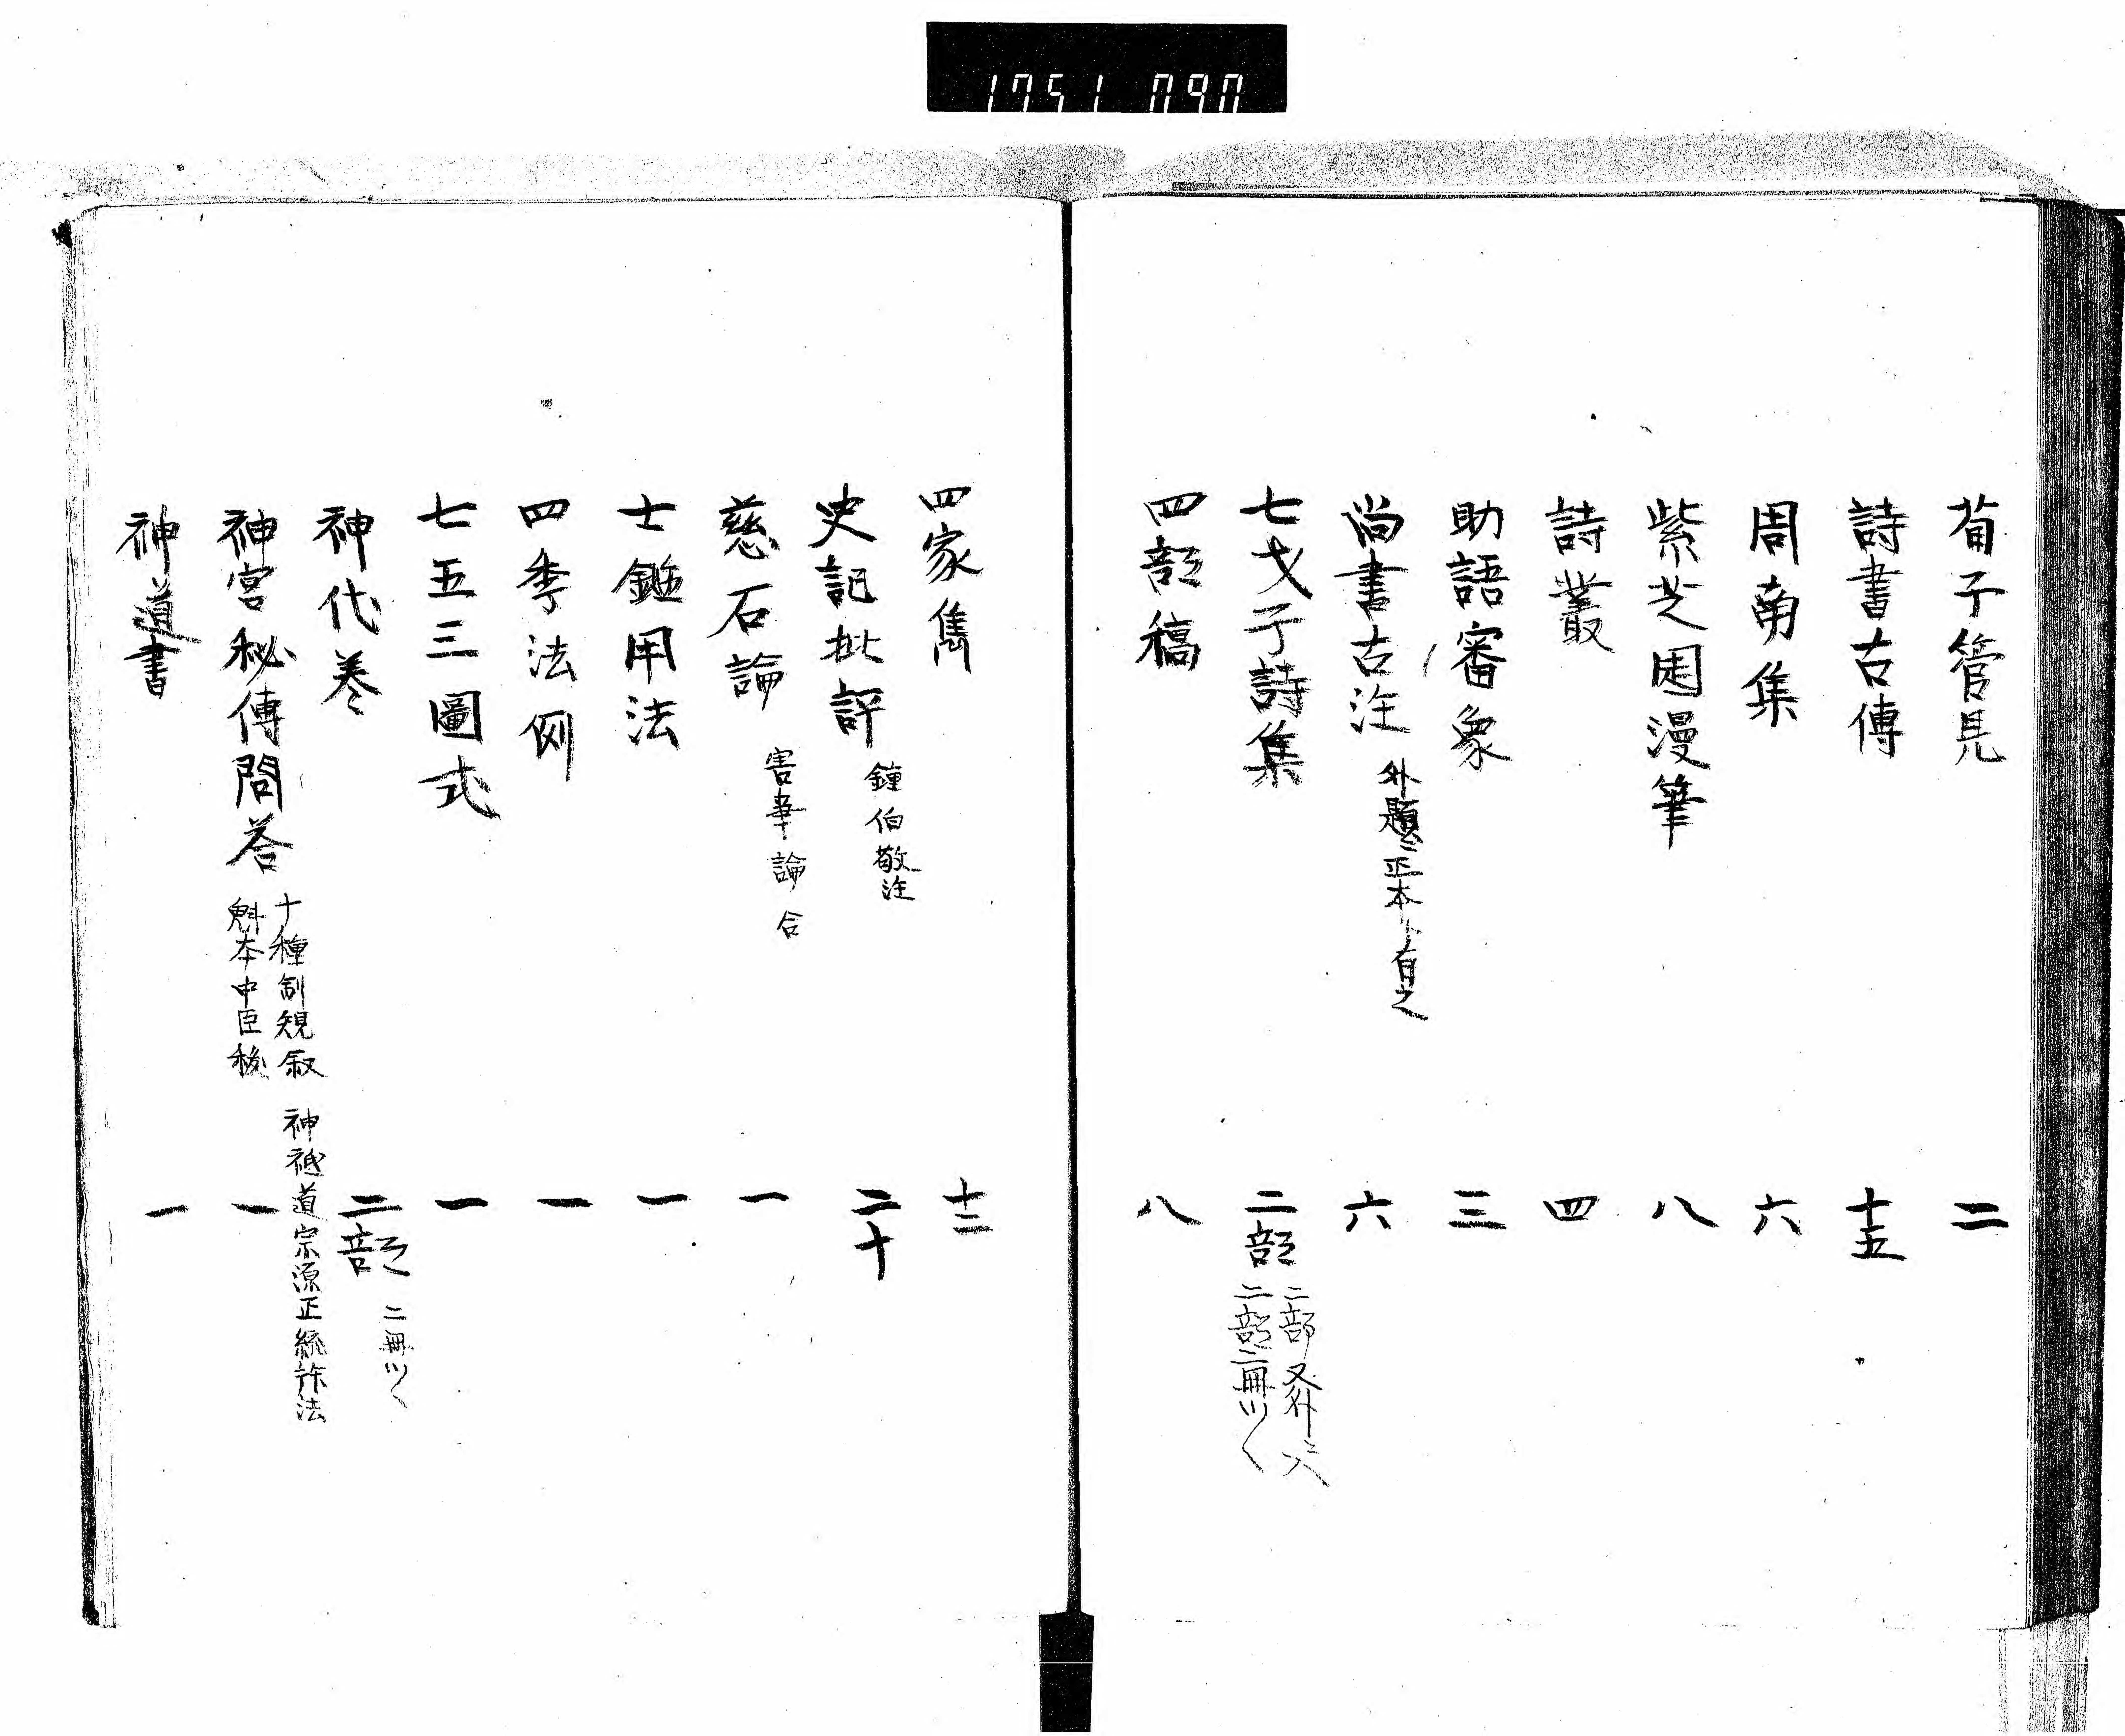 1751 090
荀子管見 二
詩書古傳 十五
周南集 六
紫芝園漫筆 八
詩叢 四
助語審象 三
尚書古注 外題ニ正本ト有之 六
七才子詩集 二部 二部又外ニ六
二部二冊ツヽ
四部稿 八
四家雋 十二
史記批評 鐘伯敬注 二十
慈石論 害華論 合 一
士鑑用法 一
四季法例 一
七五三圖式 一
神代巻 二部 二冊ツヽ
神宮秘傳問答 十種剖規叙 神祇道宗源正統許法
魁本中臣秡 一
神道書 一